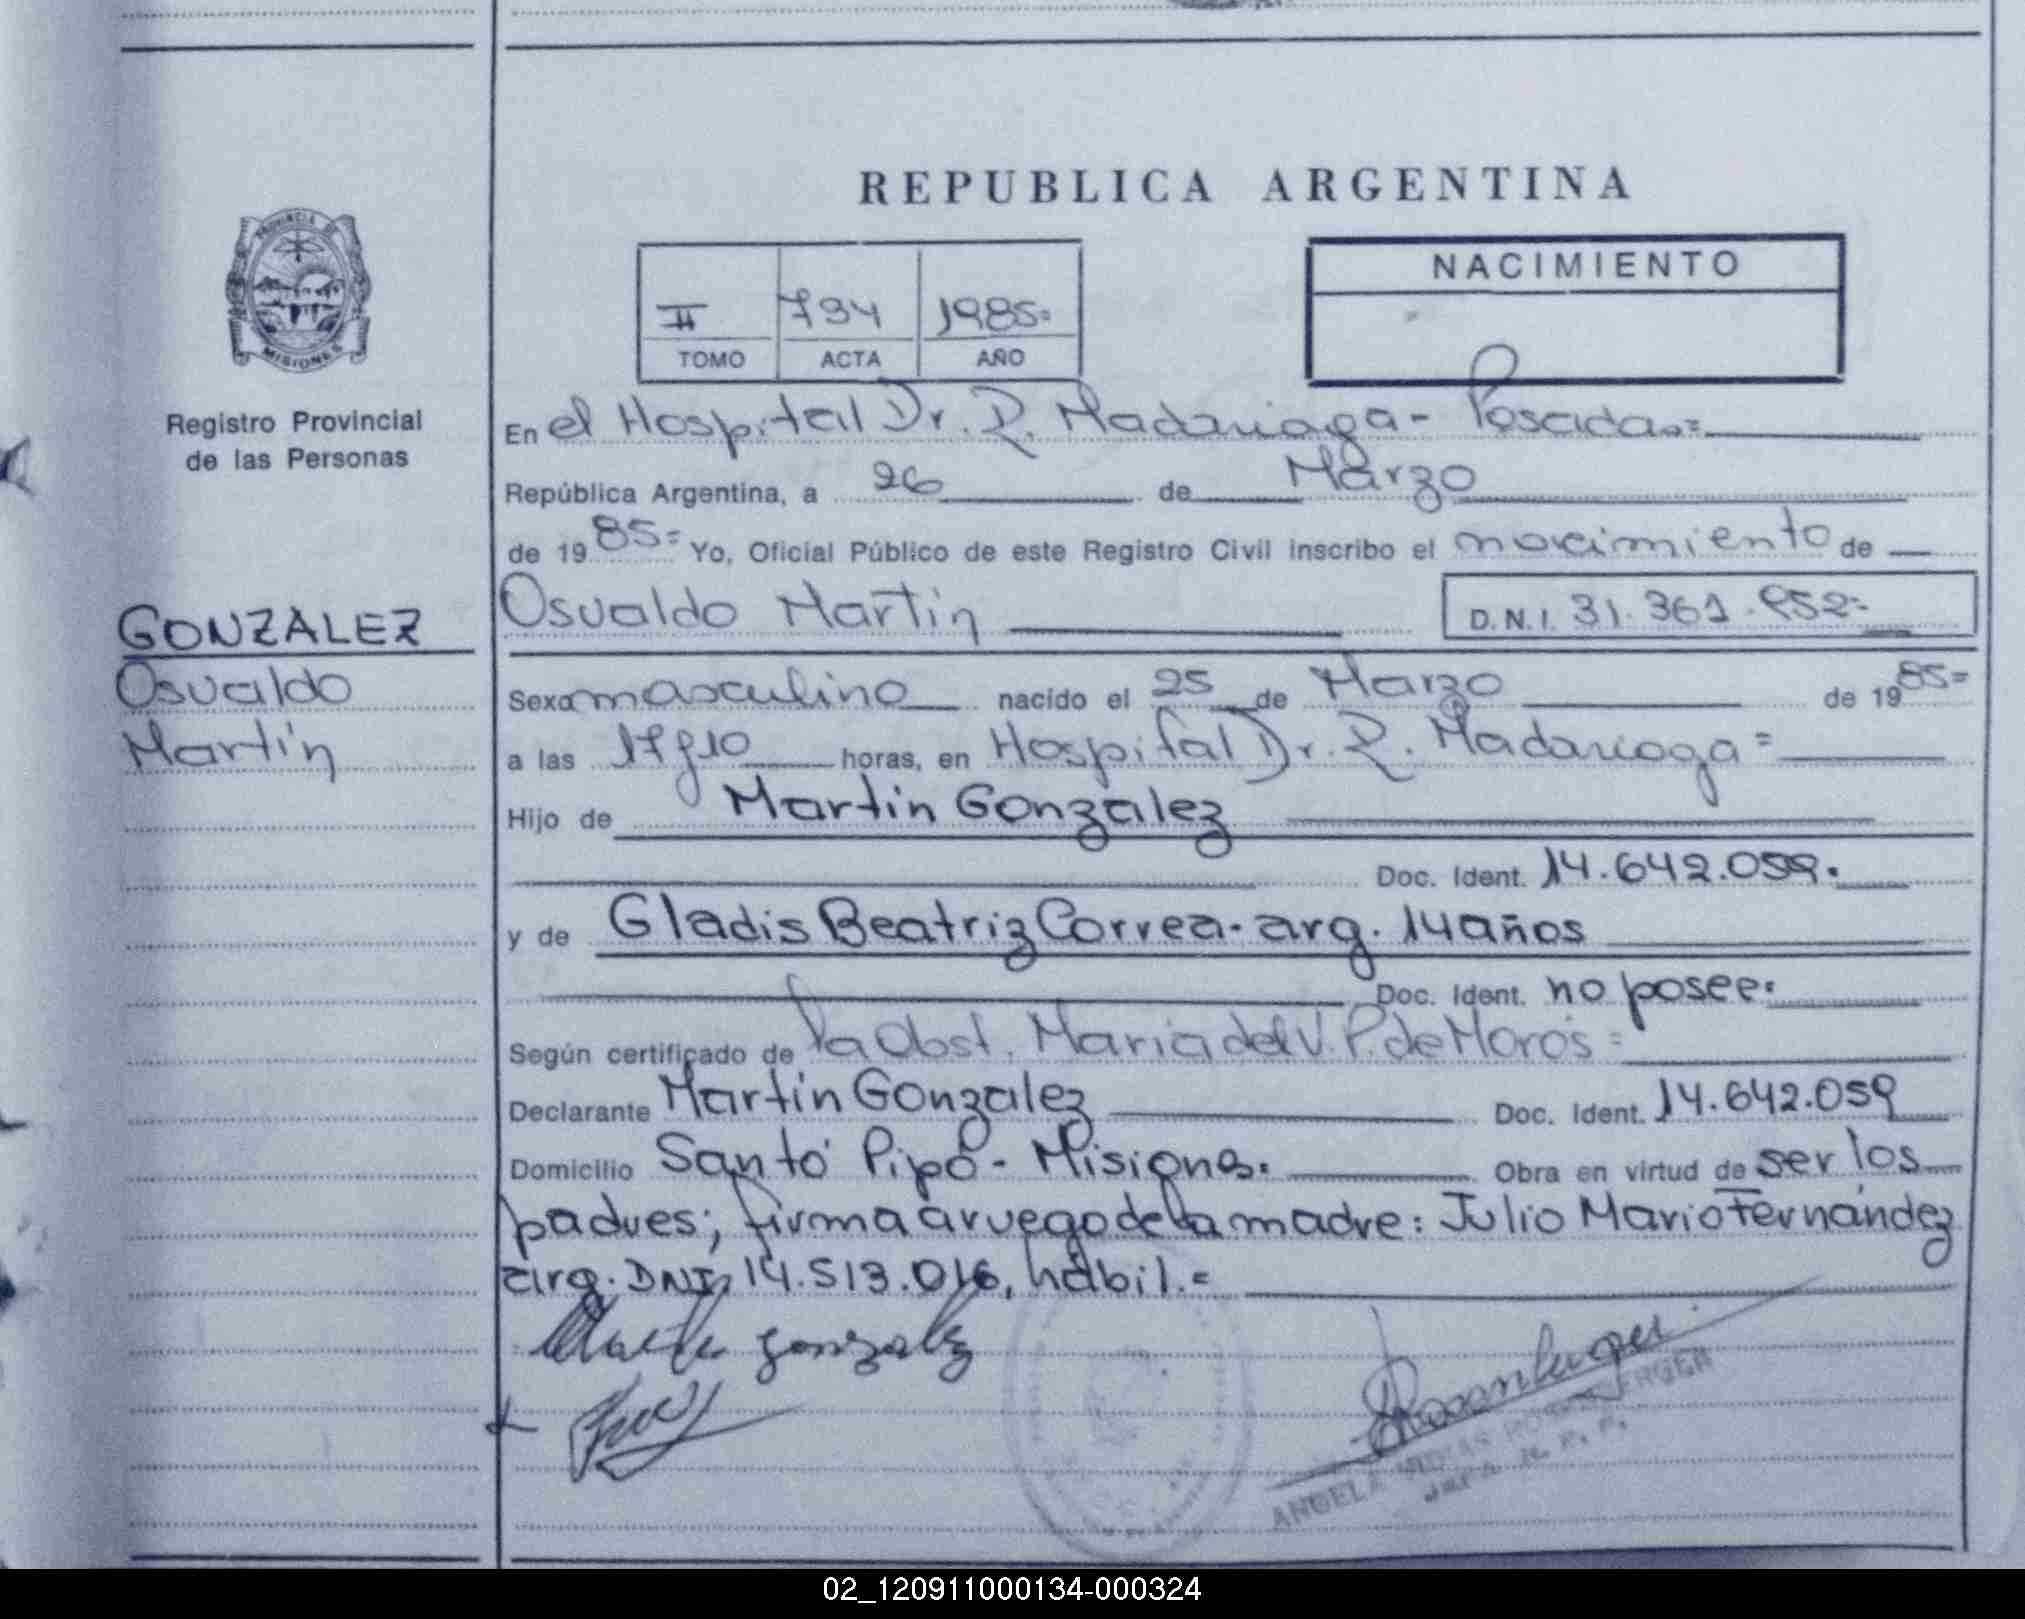 REPUBLICA ARGENTINA
PROVINCIA DE
MISIONES
Registro Provincial
de las Personas
GONZALEZ
Osvaldo
Martín
II 734 1985=
TOMO ACTA AÑO
NACIMIENTO
En el Hospital Dr. R. Madariaga - Posadas=
República Argentina, a 26 de Marzo
de 19 85= Yo, Oficial Público de este Registro Civil inscribo el nacimiento de
Osvaldo Martín D.N.I. 31.361.952=
Sexo masculino nacido el 25 de Marzo de 19 85=
a las 17 y 10 horas, en Hospital Dr. R. Madariaga=
Hijo de Martín Gonzalez
Doc. Ident. 14.642.059.
y de Gladis Beatriz Correa. arg. 14 años
Doc. Ident. no posee.
Según certificado de la Obst. María del V. P. de Morós=
Declarante Martín Gonzalez Doc. Ident. 14.642.059
Domicilio Santo Pipó - Misiones. Obra en virtud de ser los
padres; firma a ruego de la madre: Julio Mario Fernández
arg. DNI, 14.513.016, hábil.=
gonzalez
ANGELA ROSENBERGER
R. P. P.
02_120911000134-000324